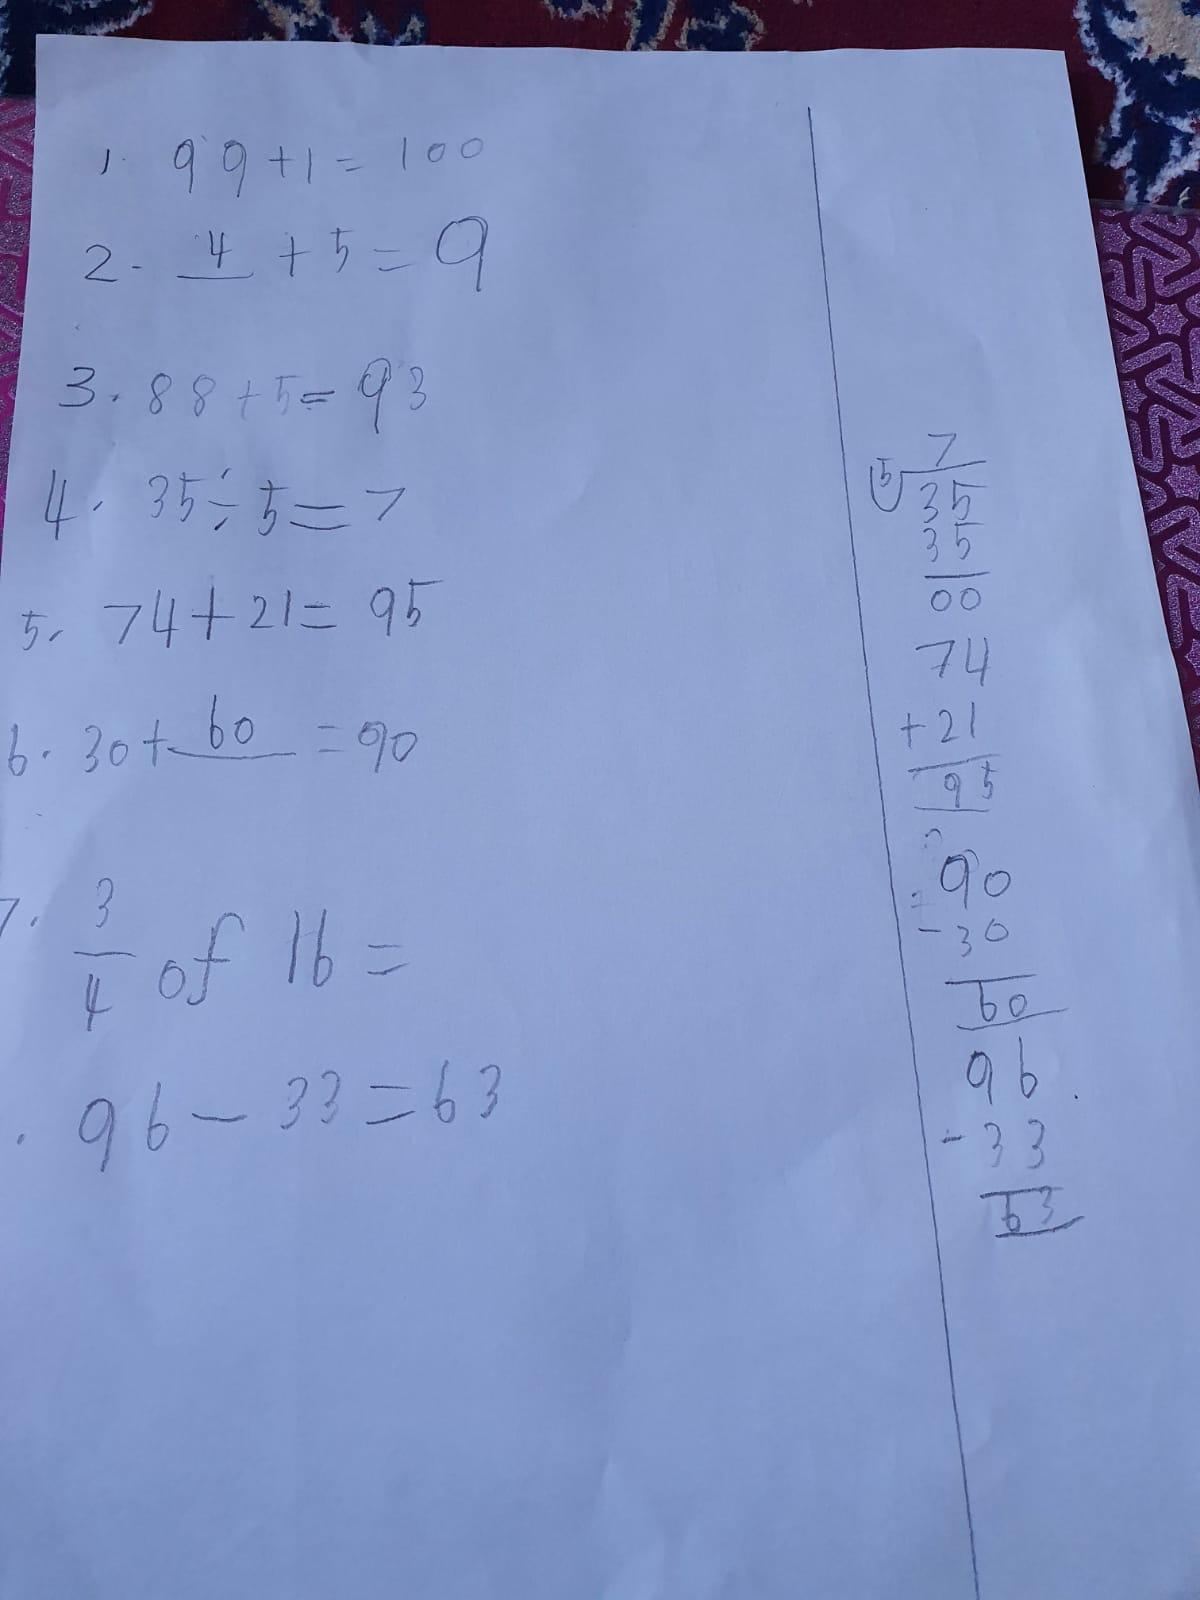 1. 99+1= 100
2- 4 +5= 9
3. 88+5= 93
4. 35÷5= 7
5. 74+21= 95
6. 30+ 60 =90
7. 3/4 of 16 =
. 96-33=63
7
5 35
35
00
74
+21
95
90
-30
60
96
-33
63